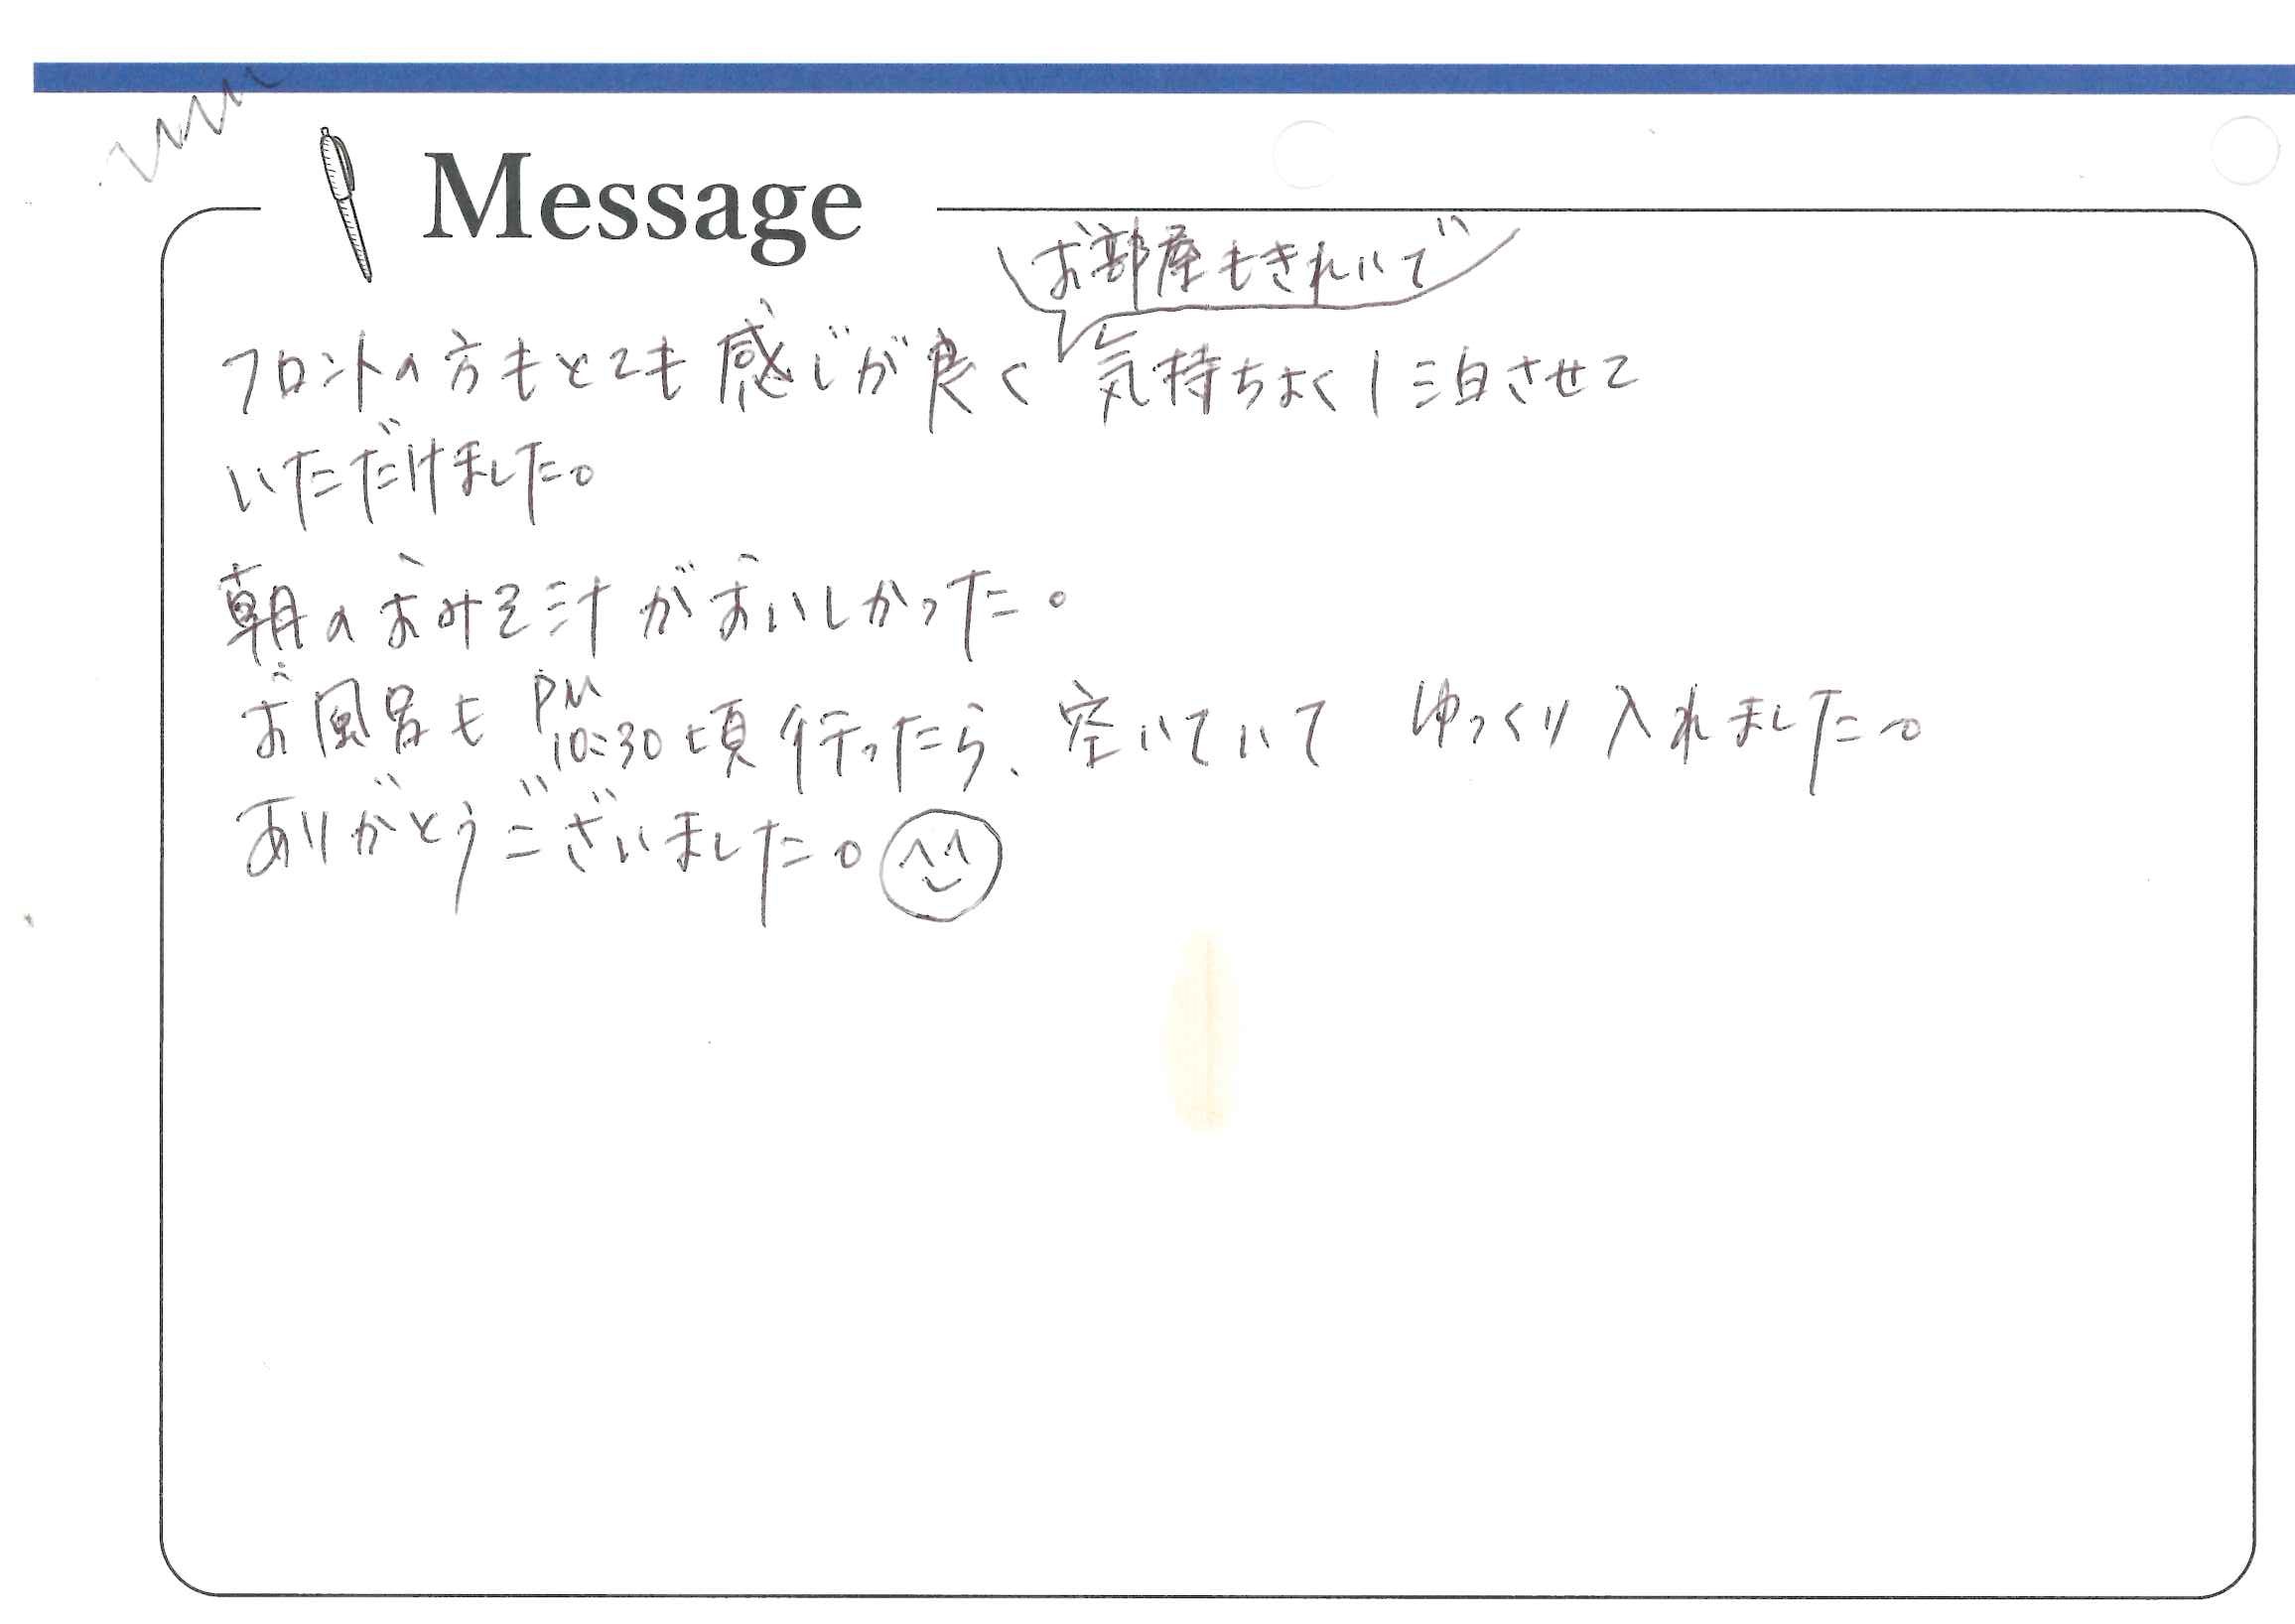 Message
お部屋もきれいで
フロントの方もとても感じが良く 気持ちよく1泊させて
いただけました。
朝のおみそ汁がおいしかった。
お風呂も PM 10:30頃行ったら、空いていて ゆっくり入れました。
ありがとうございました。